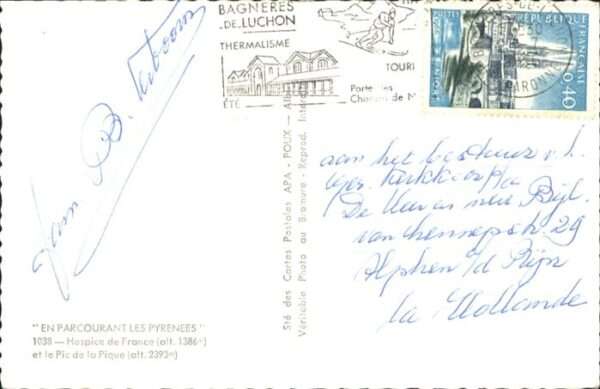 BAGNERES
-DE-LUCHON
THERMALISME
ÉTÉ
TOURI
Porte des
REPUBLIQUE
FRANÇAISE
POSTES
0,40
GARONN
B.
aan het bestuur v.h.
Ger. Kerkkoor p/a
De Heer
Bijl.
van Hennepstr 29
Alphen a/d Rijn
la Hollande
Sté des Cartes Postales APA - POUX - Albi
Véritable Photo au Bromure - Reprod. Interd.
"EN PARCOURANT LES PYRENEES"
1038 — Hospice de France (alt. 1386m)
et le Pic de la Pique (alt. 2393m)